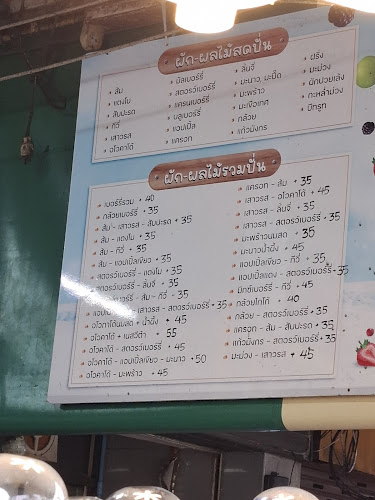 ผัก-ผลไม้สดปั่น
• ส้ม
• แตงโม
• สับปะรด
• กีวี่
• เสาวรส
• อโวคาโด้
• มัลเบอร์รี่
• สตอรว์เบอร์รี่
• แครนเบอร์รี่
• บลูเบอร์รี่
• แอปเปิ้ล
• แครอท
• ลิ้นจี่
• มะนาว, มะปี๊ด
• มะพร้าว
• มะเขือเทศ
• กล้วย
• แก้วมังกร
• ฝรั่ง
• มะม่วง
• ผักบวยเล้ง
• กะหล่ำม่วง
• บีทรูท
ผัก-ผลไม้รวมปั่น
• เบอร์รี่รวม • 40
• กล้วยเบอร์รี่ • 35
• ส้ม - เสาวรส - สับปะรด • 35
• ส้ม - แตงโม • 35
• ส้ม - กีวี่ • 35
• ส้ม - แอปเปิ้ลเขียว • 35
• สตอรว์เบอร์รี่ - แตงโม • 35
• สตอรว์เบอร์รี่ - ลิ้นจี่ • 35
เบอร์รี่ - ส้ม - กีวี่ • 35
- เสาวรส - สตอรว์เบอร์รี่ • 35
• อโวคาโด้นมสด + น้ำผึ้ง • 45
• อโวคาโด้ + เนสวีต้า • 55
• อโวคาโด้ - สตอรว์เบอร์รี่ • 45
• อโวคาโด้ - แอปเปิ้ลเขียว - มะนาว • 50
• อโวคาโด้ - มะพร้าว • 45
• แครอท - ส้ม • 35
• เสาวรส - อโวคาโด้ • 45
• เสาวรส - ลิ้นจี่ • 35
• เสาวรส - สตอรว์เบอร์รี่ • 35
• มะพร้าวนมสด • 35
• มะนาวน้ำผึ้ง • 45
• แอปเปิ้ลเขียว - กีวี่ • 35
• แอปเปิ้ลแดง - สตอรว์เบอร์รี่ • 35
• มิกซ์เบอร์รี่ - กีวี่ • 45
• กล้วยโกโก้ • 40
• กล้วย - สตอรว์เบอร์รี่ • 35
• แครอท - ส้ม - สับปะรด • 35
• แก้วมังกร - สตอรว์เบอร์รี่ • 35
• มะม่วง - เสาวรส • 45